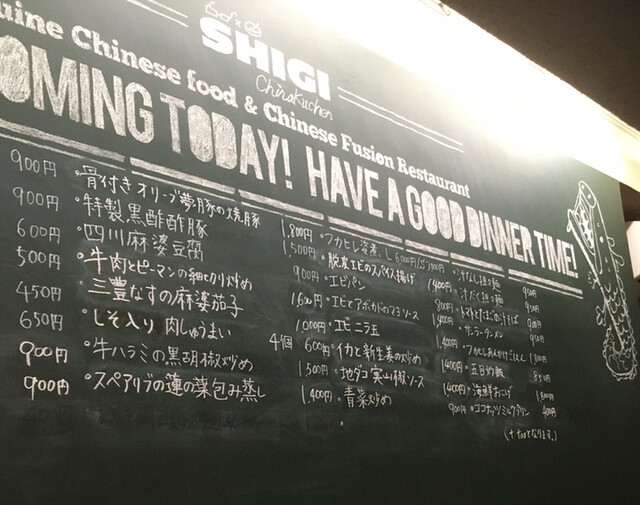 SHIGI
ChinaKitchen
uine Chinese food & Chinese Fusion Restaurant
OMING TODAY! HAVE A GOOD DINNER TIME!
900円 ・骨付きオリーブ夢豚の焼豚
900円 ・特製黒酢酢豚
600円 ・四川麻婆豆腐
500円 ・牛肉とピーマンの細切り炒め
450円 ・三豊なすの麻婆茄子
650円 ・しそ入り肉しゅうまい
900円 ・牛ハラミの黒胡椒炒め
900円 ・スペアリブの蓮の葉包み蒸し
1,800円 ・フカヒレ姿煮
1,500円 ・脱皮エビのスパイス揚げ
900円 ・エビパン
1,600円 ・エビとアボカドのマヨソース
1,000円 ・エビニラ玉
4個 600円 ・イカと新生姜の炒め
1,500円 ・地ダコ実山椒ソース
1,400円 ・青菜炒め
・汁なし担々麺 900円
1,400円 ・汁だく担々麺
800円
1,400円 ・サンラータンメン
1,400円
1,400円 ・五目炒飯 850円
1,400円 ・海鮮おこげ 1,800円
900円 ・ココナッツミルクプリン 400円
(+taxとなります。)